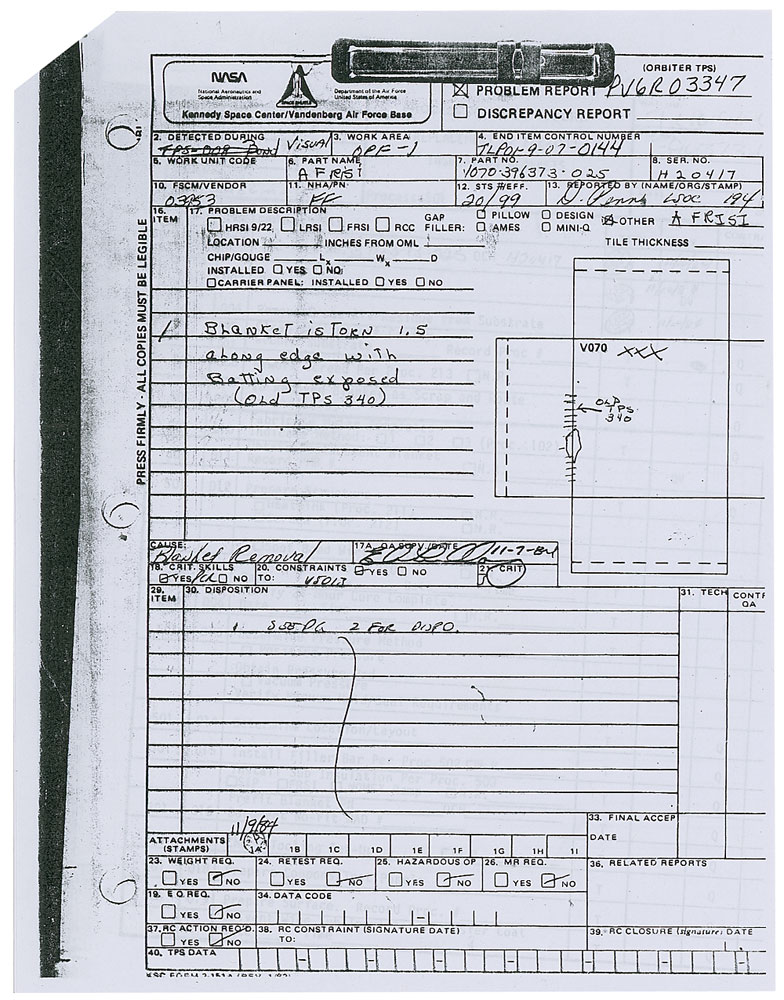 (ORBITER TPS)
NASA
National Aeronautics and
Space Administration
SPACE SHUTTLE
Department of the Air Force
United States of America
Kennedy Space Center/Vandenberg Air Force Base
PROBLEM REPORT PV6R03347
DISCREPANCY REPORT
2. DETECTED DURING
Visual
3. WORK AREA
OPF-1
4. END ITEM CONTROL NUMBER
TLP01-9-07-0144
5. WORK UNIT CODE
6. PART NAME
AFRSI
7. PART NO.
V070-396373-025
8. SER. NO.
H20417
10. FSCM/VENDOR
03953
11. NHA/PN
12. STS #/EFF.
20/99
13. REPORTED BY (NAME/ORG/STAMP)
LSOC 194
16. ITEM
17. PROBLEM DESCRIPTION
HRSI 9/22 LRSI FRSI RCC
GAP FILLER: PILLOW DESIGN OTHER AFRSI
AMES MINI-Q
LOCATION INCHES FROM OML
TILE THICKNESS
CHIP/GOUGE Lx Wx D
INSTALLED YES NO
CARRIER PANEL: INSTALLED YES NO
PRESS FIRMLY - ALL COPIES MUST BE LEGIBLE
1 Blanket is Torn 1.5
along edge with
Batting exposed
(Old TPS 340)
V070 XXX
OLD
TPS
340
CAUSE:
Blanket Removal
17A. QA SUPV/DATE
11-7-84
18. CRIT. SKILLS
YES NO
20. CONSTRAINTS
TO:
YES NO
CRIT
29. ITEM
30. DISPOSITION
31. TECH
QA
1 SEE PG 2 FOR DISPO.
33. FINAL ACCEP
DATE
11/9/84
ATTACHMENTS
(STAMPS)
1A 1B 1C 1D 1E 1F 1G 1H 1I
23. WEIGHT REQ.
YES NO
24. RETEST REQ.
YES NO
25. HAZARDOUS OP
YES NO
26. MR REQ.
YES NO
36. RELATED REPORTS
19. E.O. REQ.
YES NO
34. DATA CODE
37. RC ACTION REQ'D.
YES NO
38. RC CONSTRAINT (SIGNATURE DATE)
TO:
39. RC CLOSURE (signature) DATE
40. TPS DATA